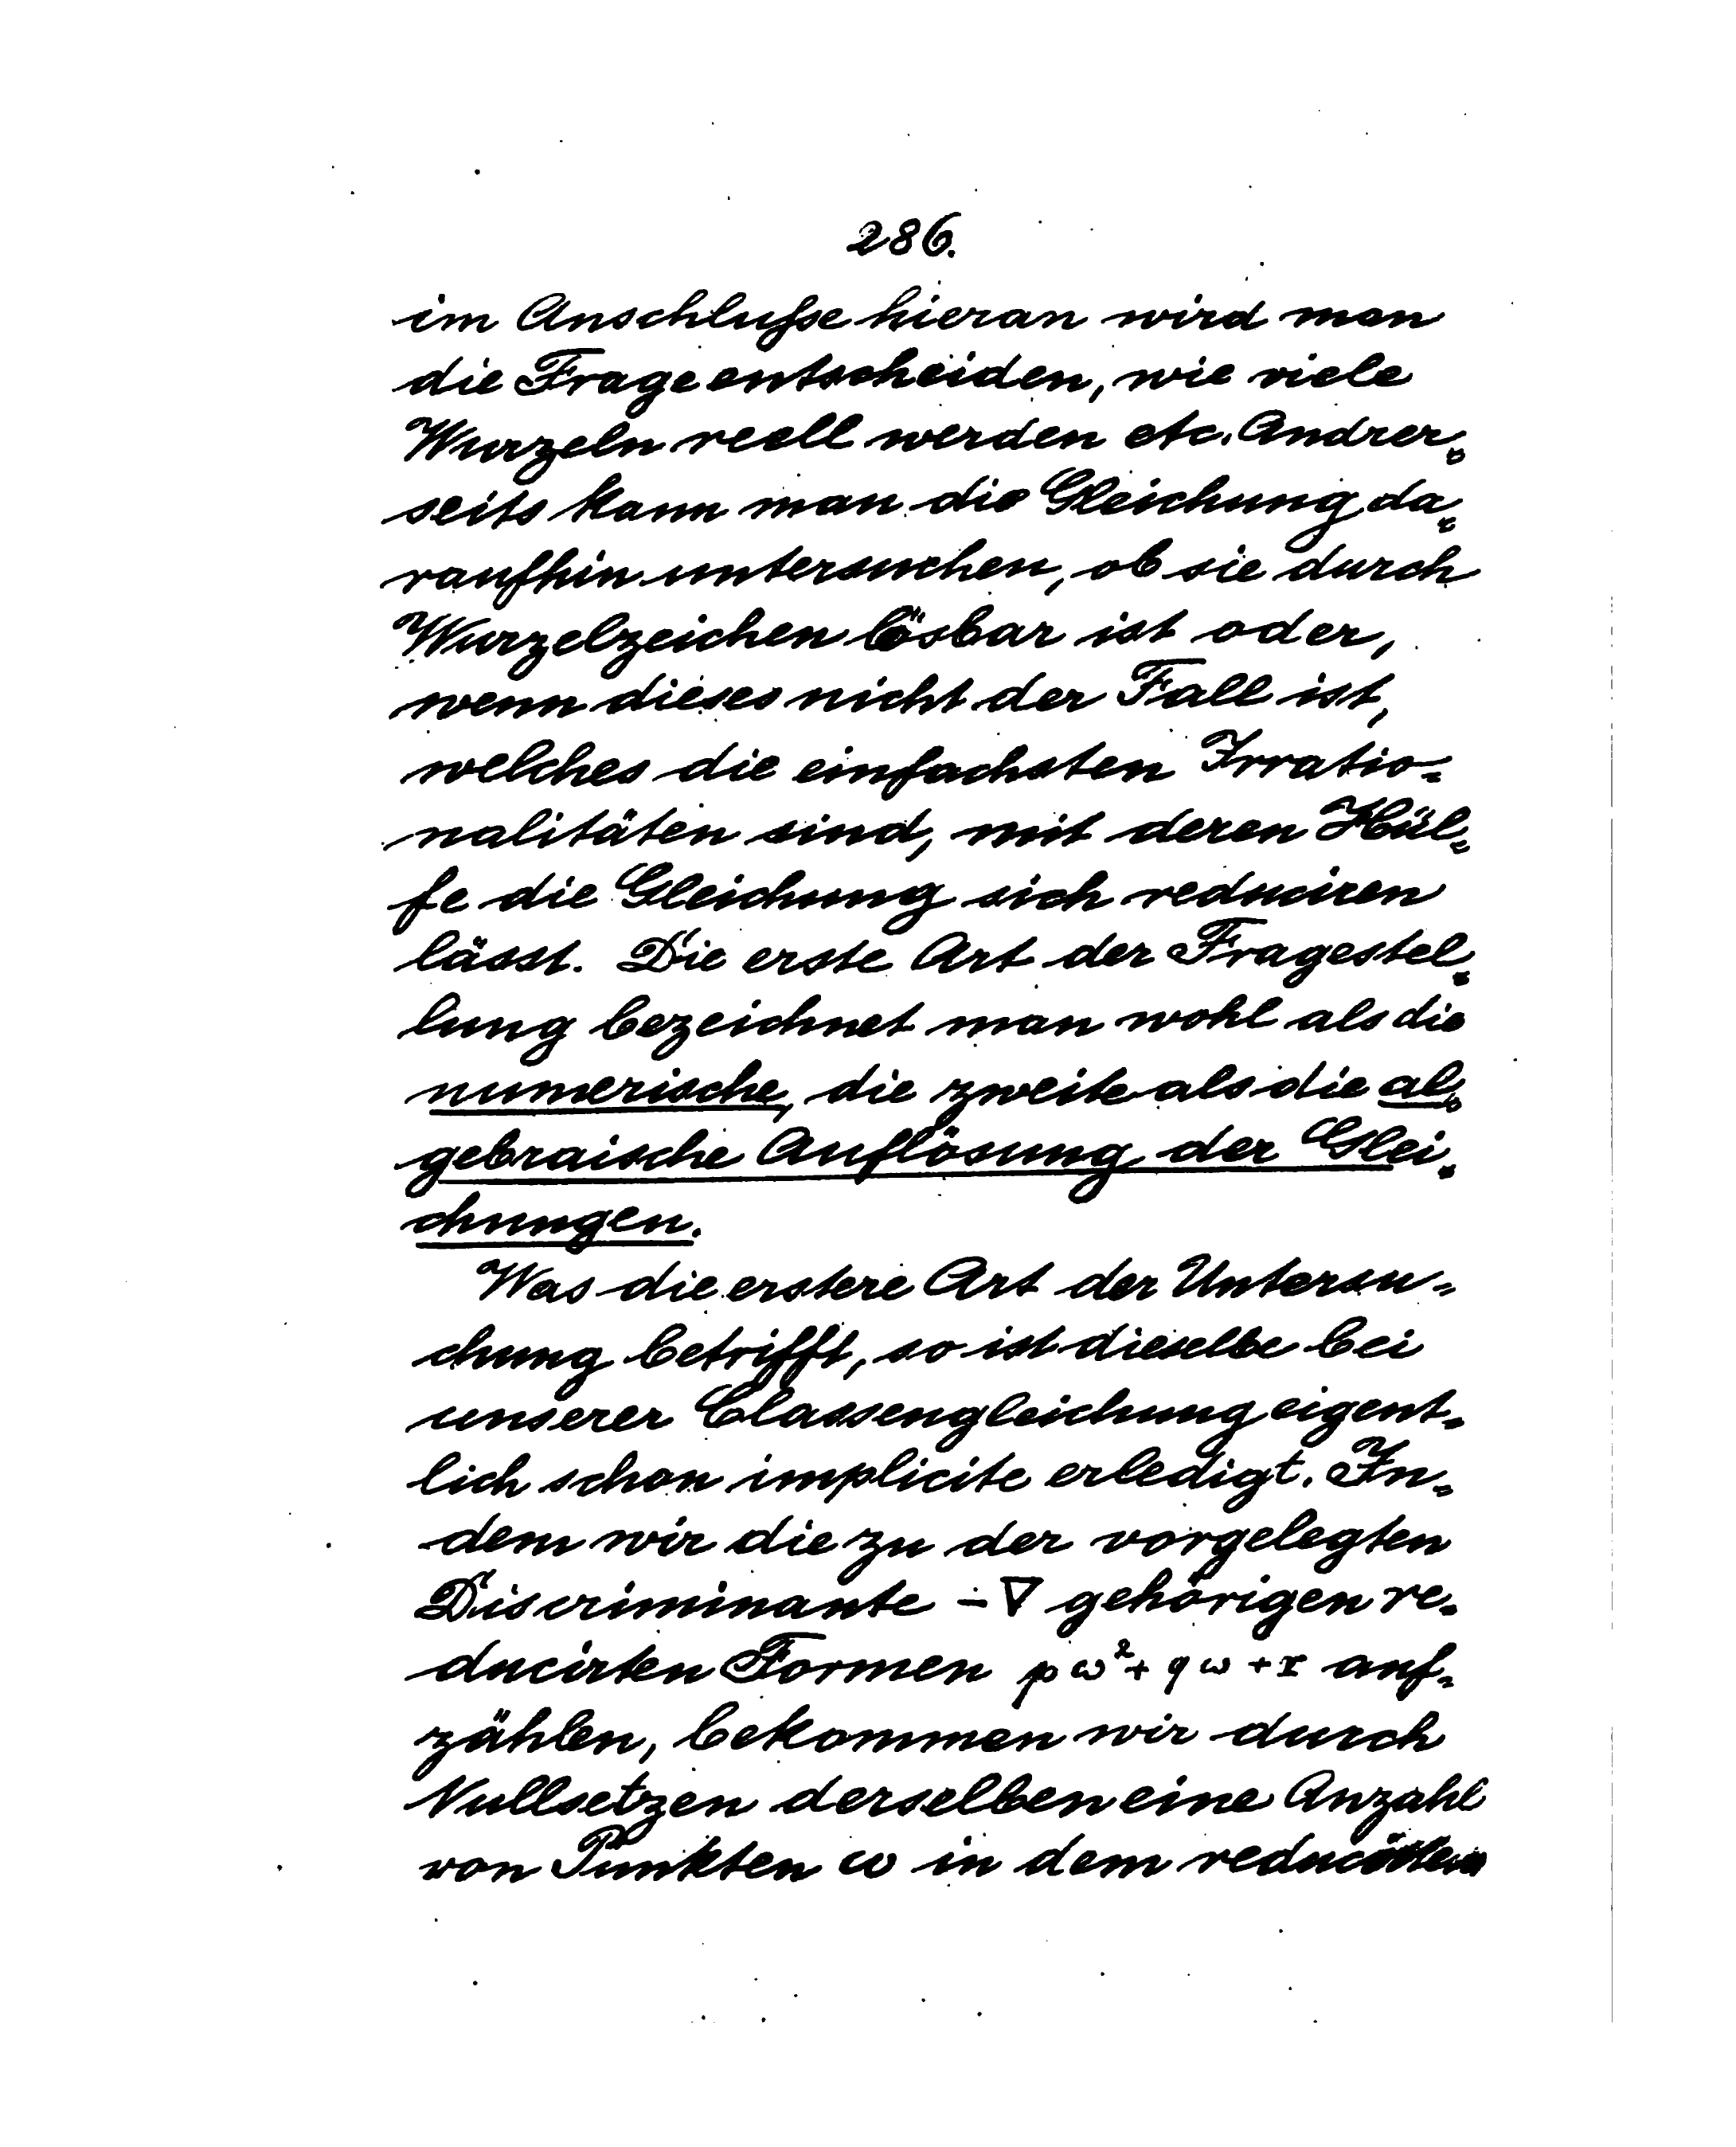 286.
im Anschlusse hieran wird man
die Frage entscheiden, wie viele
Wurzeln reell werden etc. Andrer=
seits kann man die Gleichung da=
raufhin untersuchen, ob sie durch
Wurzelzeichen lösbar ist oder,
wenn dieses nicht der Fall ist,
welches die einfachsten Irratio=
nalitäten sind, mit deren Hül=
fe die Gleichung sich reduciren
lässt. Die erste Art der Fragestel=
lung bezeichnet man wohl als die
numerische, die zweite als die al=
gebraische Auflösung der Glei=
chungen.
Was die erstere Art der Untersu=
chung betrifft, so ist dieselbe bei
unserer Classengleichung eigent=
lich schon implicite erledigt. In=
dem wir die zu der vorgelegten
Discriminante -∇ gehörigen re=
ducirten Formen pω²+qω+r auf=
zählen, bekommen wir durch
Nullsetzen derselben eine Anzahl
von Punkten ω in dem reducirten